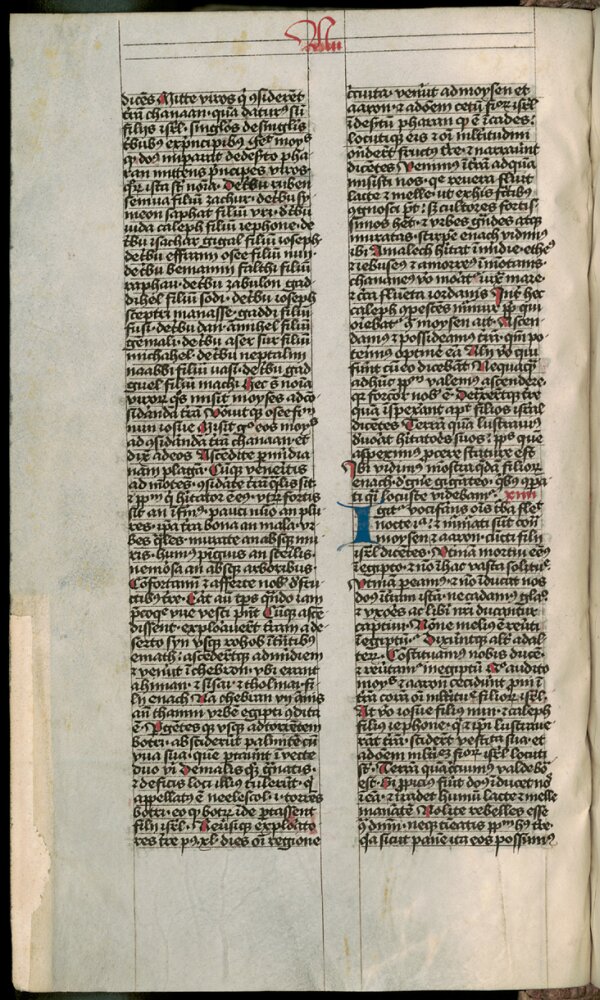 Nu
dicēs Mitte viros q̄ ɔsiderēt
trā chanaan quā daturꝰ sū
filijs isrl̄ singlōs de singlis
tbubꝰ ex pncipibꝰ
qd dn̄s imparaūt de desto pha
ran mittens pncipes viros
qꝝ ista st noīa De tbu ruben
semua filiū zachur de tbu sy
meon saphat filiū vri de tbu
iuda caleph filiū iephone de
tbu isachar gigal filiū ioseph
de tbu effraim osee filiū nun
de tbu beniamin falthi filiū
raphau de tbu zabulon gad
dihel filiū sodi de tbu ioseph
sceptri manasse gaddi filiū
fusi de tbu dan amihel filiū
gemali de tbu aser sur filiū
michahel de tbu neptalim
naabbi filiū vasi de tbu gad
guel filiū machi hec s̄ noīa
viroꝝ qs misit moyses ad co
sidandā trā Vocuitqꝫ osee
nun iosue Misit gͦ eos moyses
ad ɔsidandā trā chanaan et
dixit ad eos Ascedite p midia
nam plagā Cūqꝫ veneritis
ad mōtes ɔsidate trā qlis sit
et ppm̄ q̄ hitator ē eiꝰ vtꝝ fortis
sit an īfmꝰ pauci nūo an plu
res ipa tra bona an mala vr
bes qles murate an absqꝫ mu
ris humꝰ pīguis an sterilis
nemōsa an absqꝫ arboribus
Cōfortamī et afferte nob̄ d' fru
ctibꝰ tre Erat aū tps qn̄do iam
pcoqe vue vesci pn̄t Cūqꝫ asce
dissent exploraueīt trām a de
serto syn vsqꝫ rohob ītrātibꝰ
emath ascēdētqꝫ ad midiem
et venūt ī hebron vbi erant
ahiman et sisai et tholmai fi
lij enach Nā hebran vij annis
an̄ thanim vrbē egipti ɔdita
ē Pgetesqꝫ vsqꝫ ad torrētem
botri absciderūt palmitē cū
vua sua quē ptauīt ī vecte
duo vi De malis qqꝫ gnatis
et de ficis loci illiꝰ tulerūt qͥ
appellatꝰ ē neelescol i torrēs
botri eo qͦ botrū īde portassent
filij isrl̄ Reuersiqꝫ explorato
res tre p xl dies oī regione
circuita venūt ad moysen et
aaron et ad oēm cetū filioꝝ isrl̄
ī destū pharan qͦ ē ī cades
locutiqꝫ eis et oī multitudini
ondert fructꝰ tre et narraūt
dicētes Venimꝰ ī trā ad quā
misisti nos qe reuera fluit
lacte et melle vt ex his fctibꝰ
ɔgnosci pt sꝫ cultores fortis
simos hꝫ et vrbes gndes atqꝫ
muratas stirpē enach vidimꝰ
ibi Amalech hitat ī midie ethe
et iebuseꝰ et amorreꝰ ī mōtanis
chananeꝰ vo moat iux mare
et cīra flueta iordanis Int hec
caleph ɔpescēs murmur ppl̄i qui
oriebat ɔ moysen ait Ascen
damꝰ et possideamꝰ trā qm̄ po
terimꝰ optinē eā Alij vo qui
funt cū eo dicebāt Nequaqꝫ
ad hūc ppm̄ valemꝰ ascendere
qꝛ forcior nob̄ ē Detraxtqꝫ tre
quā īsperant apt filios isrl̄
dicētes Terrā quā lustrauimꝰ
duorat hitatoēs suos pps quē
aspeximꝰ pcere stature est
Ibi vidimꝰ mostra qdā filioꝝ
enach d' gne gigāteo qbꝰ ɔpa
ti qͣi locuste videbamur xiiii
Igit vociferāns oīs tba fleuit
nocte illa et murmurati sūt cont
moysen et aaron cūcti filij
isrl̄ dicētes Vtinā mortui eēmꝰ
ī egipto et nō ī hac vasta solitudie
Vtinā peamꝰ et nō īducat nos
dn̄s ī trām istā ne cadamꝰ gladio
et vxores ac libi nri ducāntur
captiui Nōne meliꝰ ē reūti
ī egiptū Dixeruntqꝫ alt̄ ad al
teꝝ Cōstituamꝰ nobis ducē
et reūtamꝰ in egiptū Quo audito
moyses et aaron ceciderūt pni ī
trā corā oī multitudie filioꝝ isrl̄
At vo iosue filiꝰ nun et caleph
filiꝰ iephone q̄ et ipi lustraue
rāt trā sciderūt vestimēta sua et
ad oēm multitudinē filioꝝ isrl̄ locuti
st Terrā quā circuimꝰ valde bona
est Si ppiciꝰ fuerit dn̄s īducet nos
ī eā et tradet humū lacte et melle
manātē Nolite rebelles esse
ɔ dnm̄ neqꝫ timeatis ppm̄ hꝰ tre
qꝛ sicut panē ita eos possumꝰ